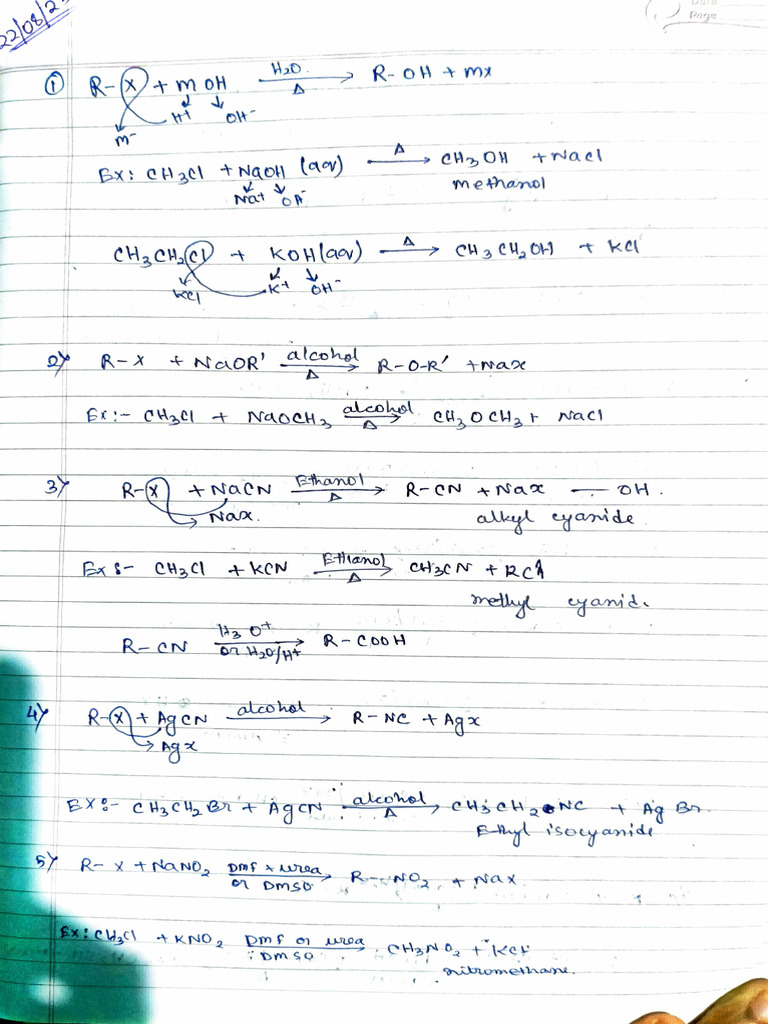 22/08/2
Date
Page
① R-X + m OH H₂O Δ → R-OH + mx
H+ OH⁻
m⁻
Ex: CH₃Cl + NaOH (aq) Δ → CH₃OH + NaCl
Na+ OH⁻ methanol
CH₃CH₂Cl + KOH(aq) Δ → CH₃CH₂OH + KCl
KCl K+ OH⁻
2) R-X + NaOR' alcohol Δ → R-O-R' + Nax
Ex:- CH₃Cl + NaOCH₃ alcohol Δ → CH₃OCH₃ + NaCl
3) R-X + NaCN Ethanol Δ → R-CN + Nax — OH.
Nax. alkyl cyanide
Ex:- CH₃Cl + KCN Ethanol Δ → CH3CN +
methyl cyanid.
R-CN H₃O⁺ or H₂O/H+ → R-COOH
4) R-X + AgCN alcohol → R-NC + Agx
Agx
Ex:- CH₃CH₂Br + AgCN alcohol Δ → CH₃CH₂NC + AgBr.
Ethyl isocyanide
5) R-X + NaNO₂ Dmf x urea or DMSO → R-NO₂ + Nax
Ex: CH₃Cl + KNO₂ DMf or urea DMSO → CH₃NO₂ + KCl
nitromethane.